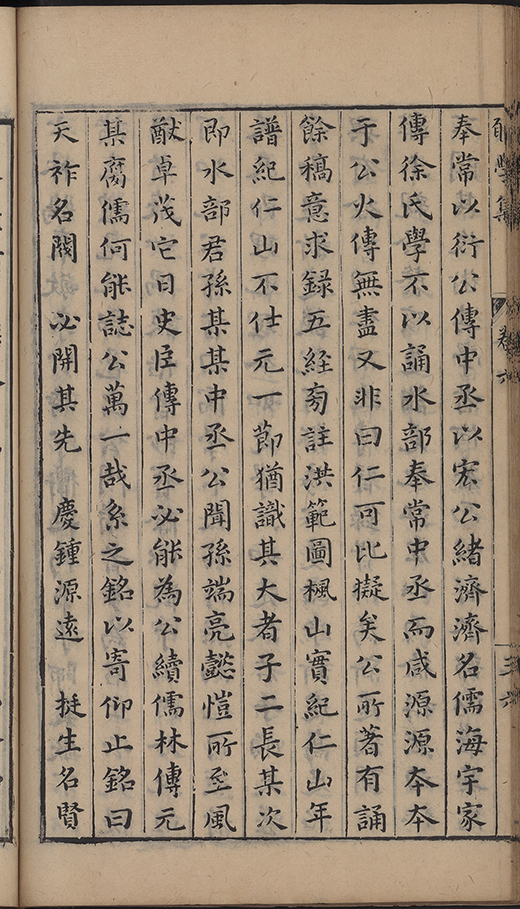 學集 卷六 三六
奉常以衍公傳中丞以宏公緒濟濟名儒海宇家
傳徐氏學不以誦水部奉常中丞而咸源源本本
于公火傳無盡又非曰仁可比擬矣公所著有誦
餘稿意求録五經旁註洪範圖楓山實紀仁山年
譜紀仁山不仕元一節猶識其大者子二長某次
即水部君孫某某中丞公聞孫端亮懿愷所至風
猷卓茂它日史臣傳中丞必能為公續儒林傳元
某腐儒何能誌公萬一哉系之銘以寄仰止銘曰
天祚名閥 必開其先 慶鍾源遠 挺生名賢